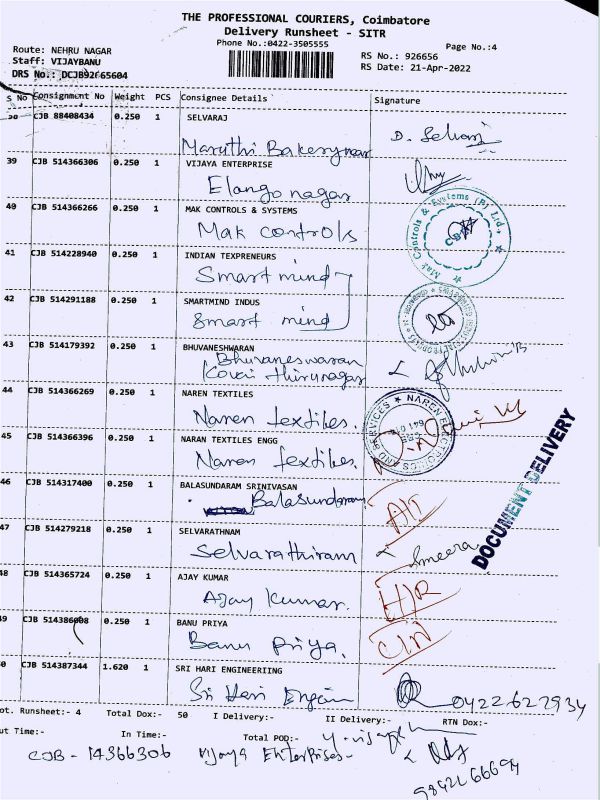 THE PROFESSIONAL COURIERS, Coimbatore
Delivery Runsheet - SITR
Phone No.:0422-3505555
Page No.:4
Route: NEHRU NAGAR
RS No.: 926656
Staff: VIJAYBANU
RS Date: 21-Apr-2022
DRS No.: DCJB92665604
S No Consignment No Weight PCS Consignee Details Signature
CJB 88408434 0.250 1 SELVARAJ
Maruthi Bakery
39 CJB 514366306 0.250 1 VIJAYA ENTERPRISE
Elango nagar
40 CJB 514366266 0.250 1 MAK CONTROLS & SYSTEMS
Mak controls
Mak Controls & Systems (P) Ltd.,
41 CJB 514228940 0.250 1 INDIAN TEXPRENEURS
Smart mind
42 CJB 514291188 0.250 1 SMARTMIND INDUS
Smart mind
43 CJB 514179392 0.250 1 BHUVANESHWARAN
Bhuvaneswaran
Kovai thirunagar
44 CJB 514366269 0.250 1 NAREN TEXTILES
Naren textiles.
NAREN ELECTRONICS AND SERVICES
45 CJB 514366396 0.250 1 NARAN TEXTILES ENGG
Naren textiles.
DOCUMENT DELIVERY
46 CJB 514317400 0.250 1 BALASUNDARAM SRINIVASAN
Balasundaram
47 CJB 514279218 0.250 1 SELVARATHNAM
Selvarathinam
Ameera
48 CJB 514365724 0.250 1 AJAY KUMAR
Ajay kumar.
49 CJB 514386008 0.250 1 BANU PRIYA
Banu Priya.
50 CJB 514387344 1.620 1 SRI HARI ENGINEERIING
Sri Hari
0422627934
Tot. Runsheet:- 4 Total Dox:- 50 I Delivery:- II Delivery:- RTN Dox:-
Out Time:- In Time:- Total POD:-
CJB - 14366306 Vijaya Enterprises-